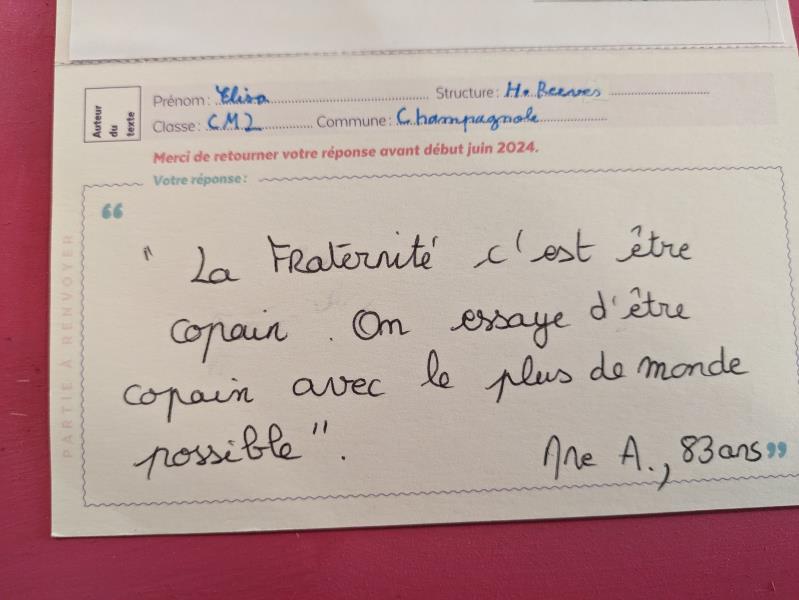 Auteur du texte
Prénom : Elisa Structure : H. Reeves
Classe : CM2 Commune : Champagnole
Merci de retourner votre réponse avant début juin 2024.
Votre réponse :
PARTIE À RENVOYER
“
" La Fraternité c'est être
copain. On essaye d'être
copain avec le plus de monde
possible".
Me A., 83 ans ”